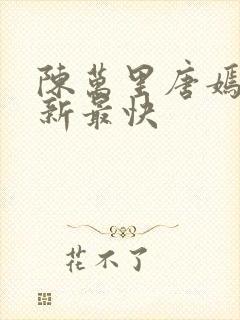 陳萬里唐嫣
新最快
花不了